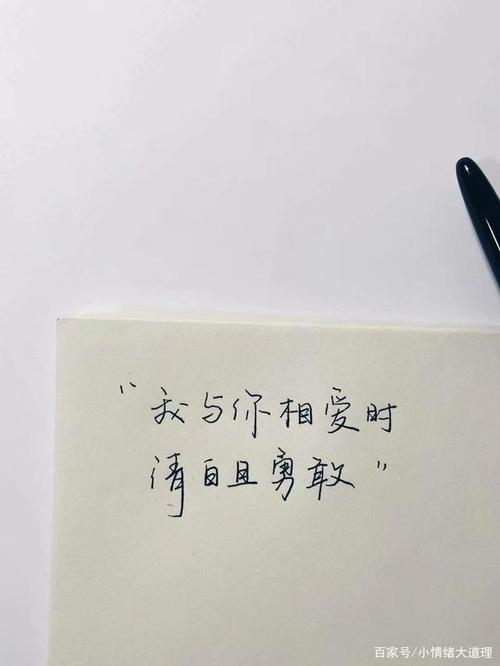 “我与你相爱时
清白且勇敢”
百家号/小情绪大道理